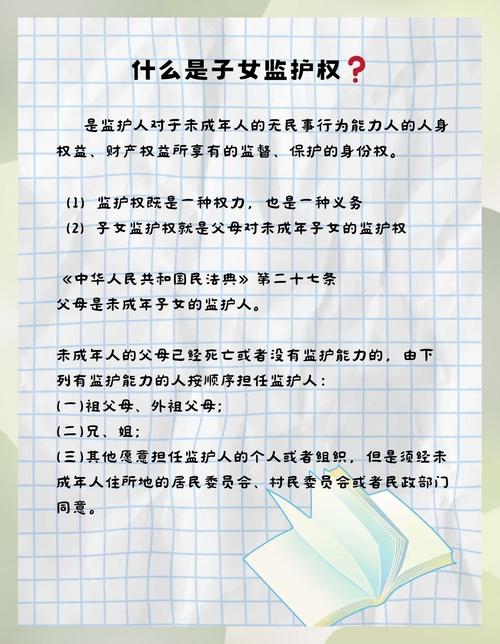 什么是子女监护权❓
是监护人对于未成年人的无民事行为能力人的人身
权益、财产权益所享有的监督、保护的身份权。
(1) 监护权既是一种权力，也是一种义务
(2) 子女监护权就是父母对未成年子女的监护权
《中华人民共和国民法典》第二十七条
父母是未成年子女的监护人。
未成年人的父母已经死亡或者没有监护能力的，由下
列有监护能力的人按顺序担任监护人：
(一)祖父母、外祖父母；
(二)兄、姐；
(三)其他愿意担任监护人的个人或者组织，但是须经未
成年人住所地的居民委员会、村民委员会或者民政部门
同意。